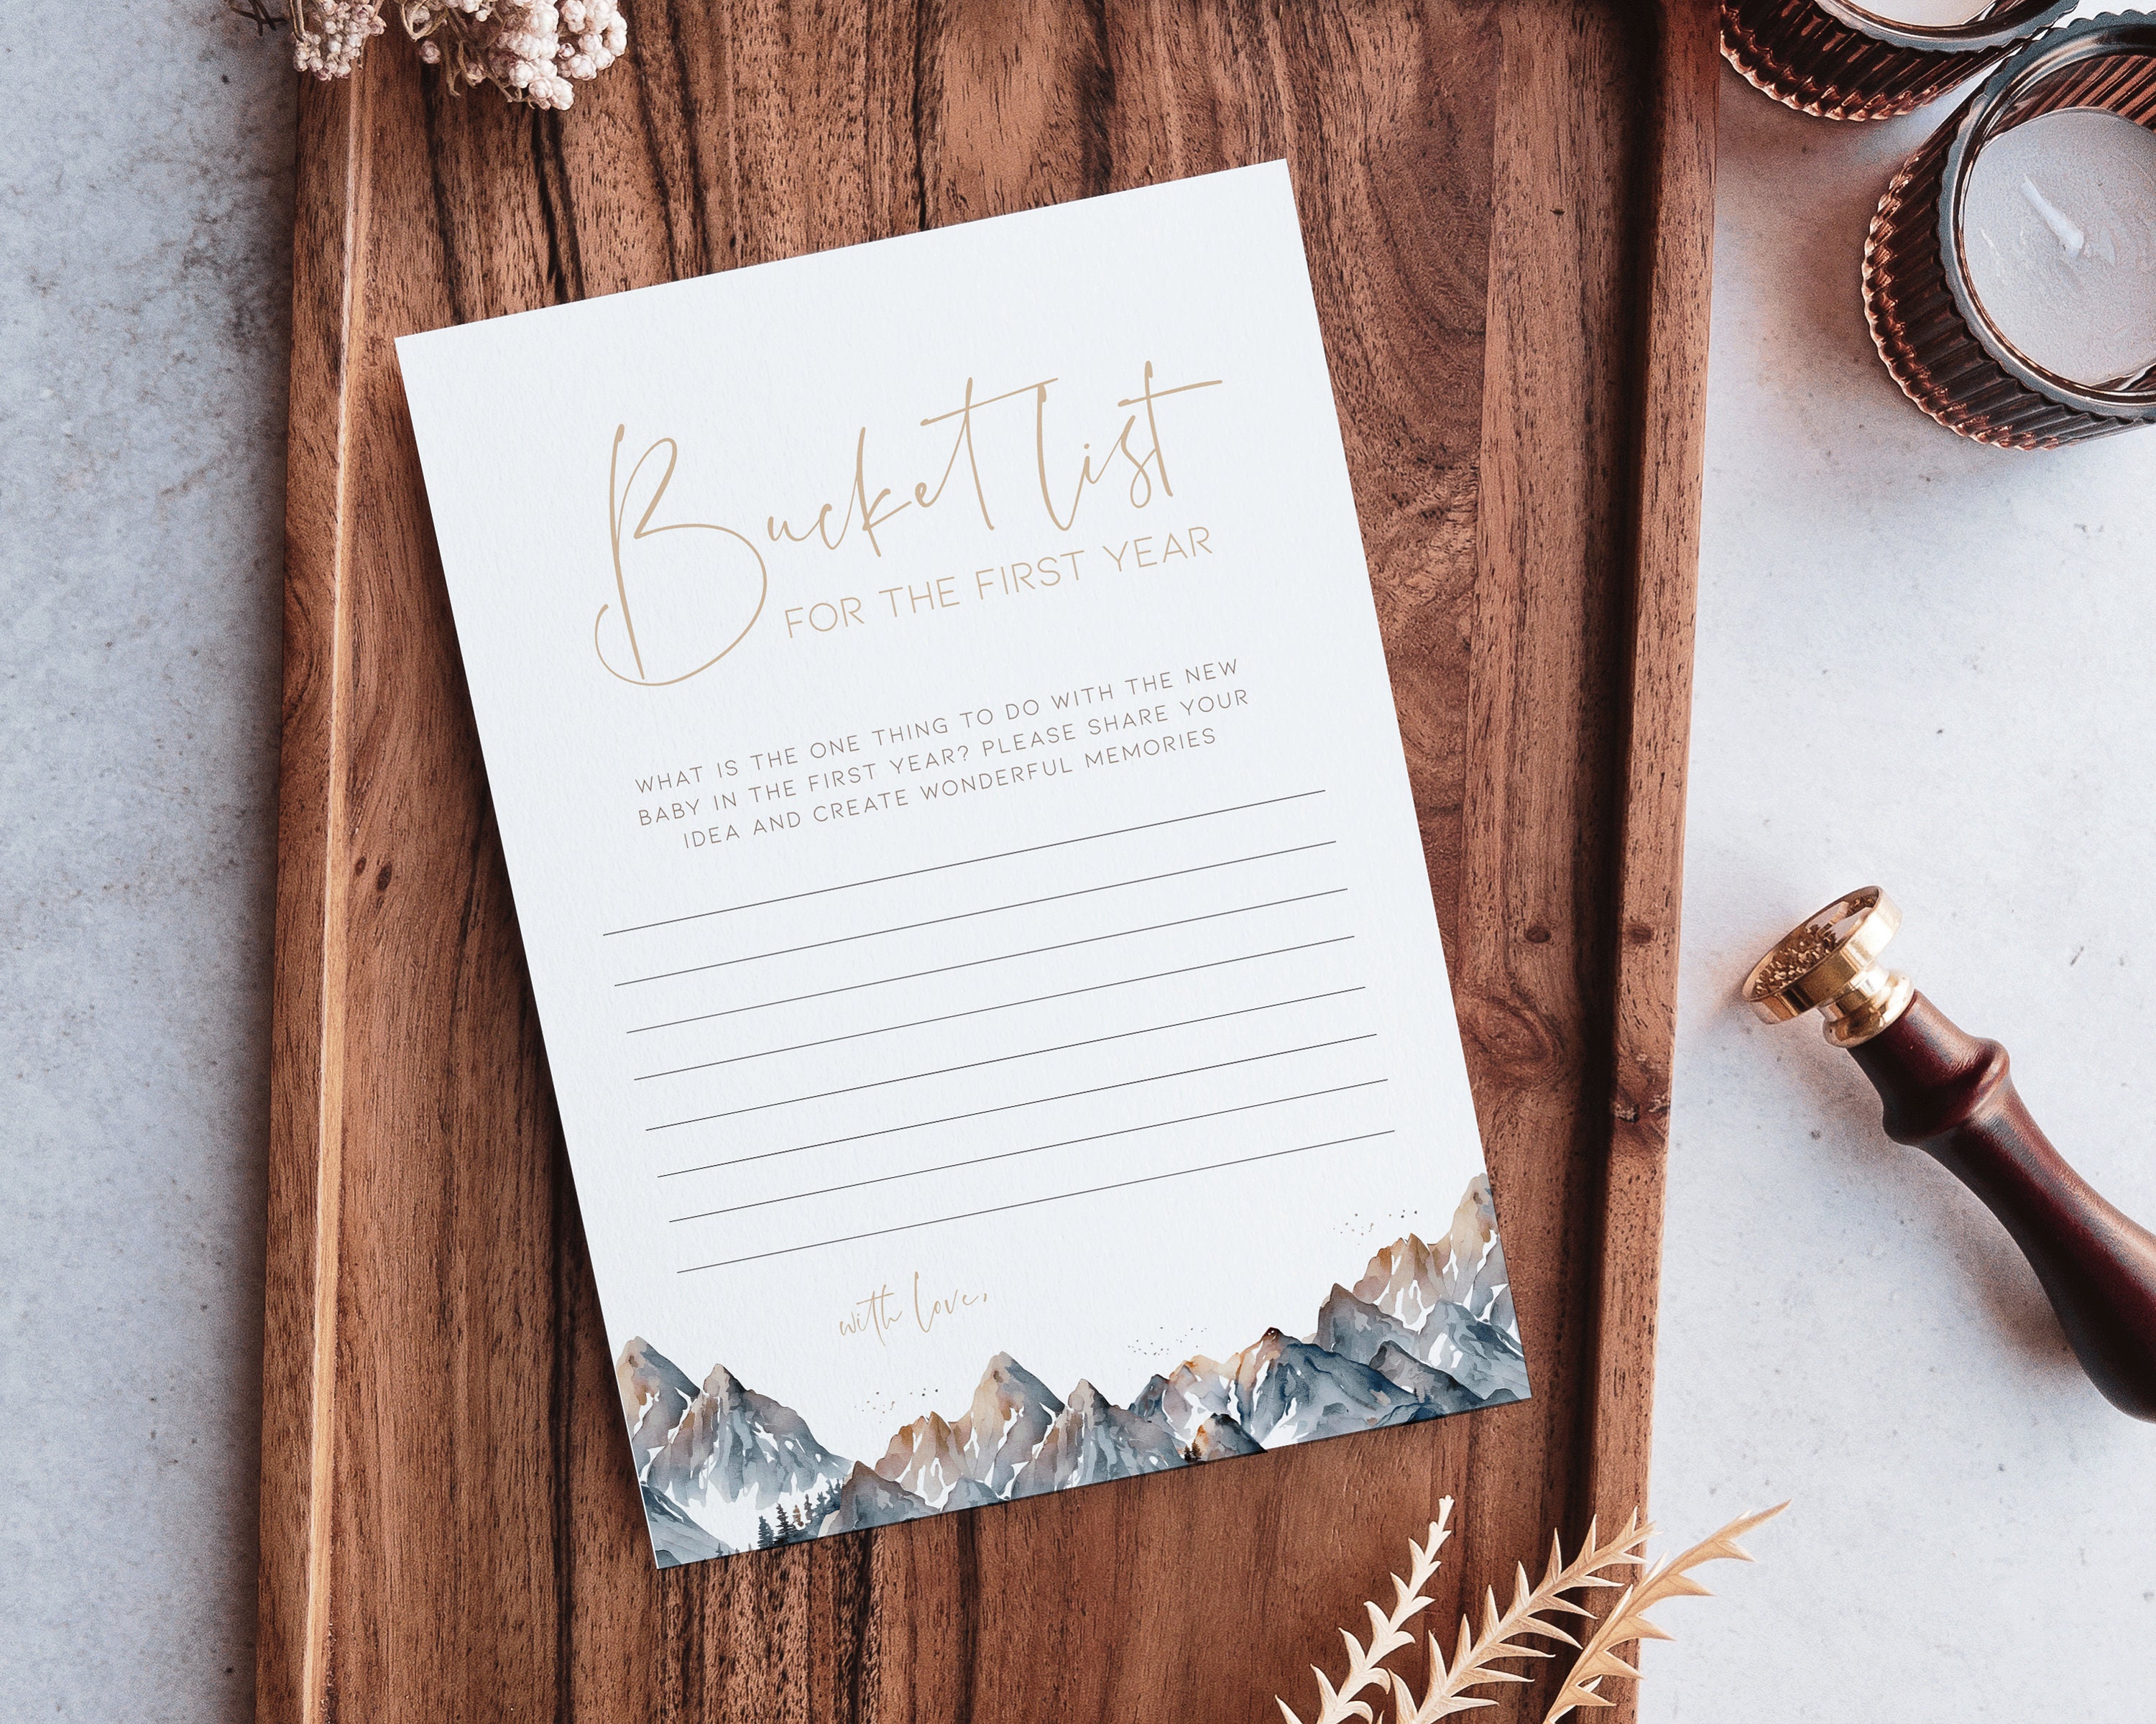 Bucket list
FOR THE FIRST YEAR
WHAT IS THE ONE THING TO DO WITH THE NEW
BABY IN THE FIRST YEAR? PLEASE SHARE YOUR
IDEA AND CREATE WONDERFUL MEMORIES
with love,